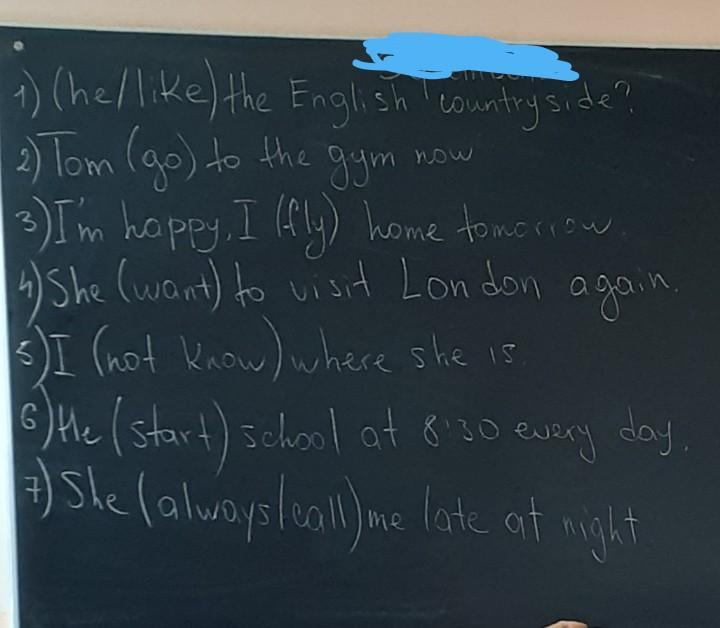 1) (he/like) the English countryside?
2) Tom (go) to the gym now
3) I'm happy, I (fly) home tomorrow.
4) She (want) to visit London again.
5) I (not know) where she is.
6) He (start) school at 8:30 every day.
7) She (always/call) me late at night